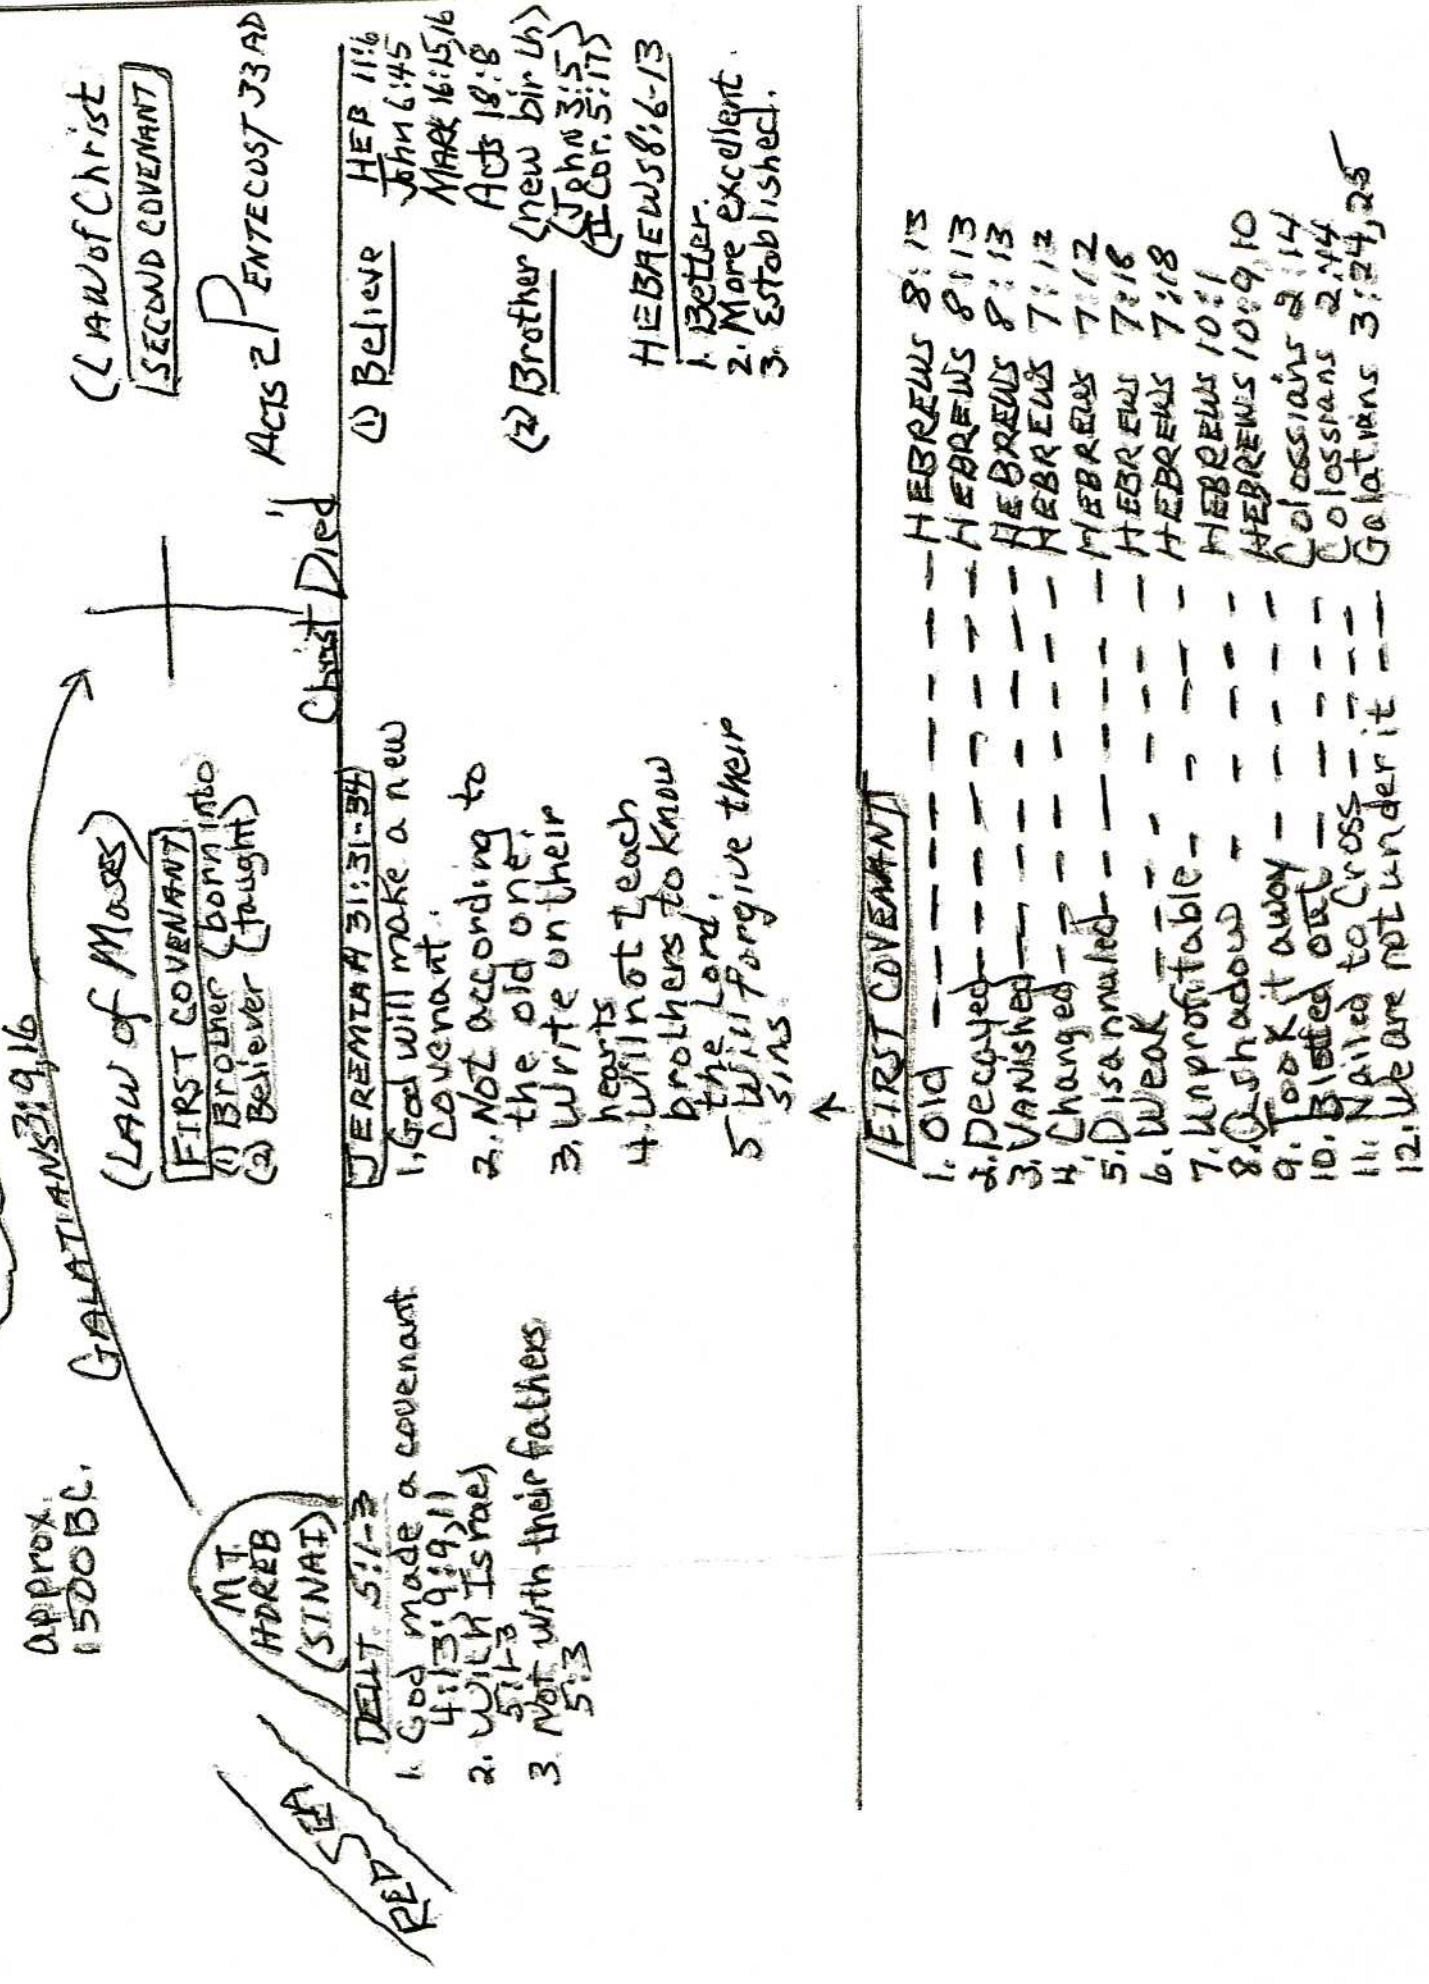 approx.
1500 BC.
GALATIANS 3:19,16
(LAW of Moses)
FIRST COVENANT
(1) Brother (born into
(2) Believer (taught)
(LAW of Christ
SECOND COVENANT
ACTS 2 PENTECOST 33 AD
MT.
HOREB
(SINAI)
RED SEA
Christ Died
DEUT 5:1-3
1. God made a covenant
4:13; 9:9,11
2. With Israel
5:1-3
3. Not with their fathers
5:3
JEREMIAH 31:31-34
1. God will make a new
Covenant.
2. Not according to
the old one.
3. Write on their
hearts
4. Will not teach
brothers to know
the Lord.
5 Will forgive their
sins
(1) Believe HEB 11:6
John 6:45
MARK 16:15,16
Acts 18:8
(2) Brother (new birth)
(John 3:5)
(II Cor. 5:17)
HEBREWS 8:6-13
1. Better.
2. More excellent.
3. Established.
FIRST COVENANT
1. Old ---- HEBREWS 8:13
2. Decayed ---- HEBREWS 8:13
3. VANISHED ---- HEBREWS 8:13
4. Changed ---- HEBREWS 7:12
5. Disannuled ---- HEBREWS 7:12
6. Weak ---- HEBREWS 7:18
7. Unprofitable ---- HEBREWS 7:18
8. A shadow ---- HEBREWS 10:1
9. Took it away ---- HEBREWS 10:9,10
10. Blotted out ---- Colossians 2:14
11. Nailed to Cross ---- Colossians 2:14
12. We are not under it ---- Galatians 3:24,25